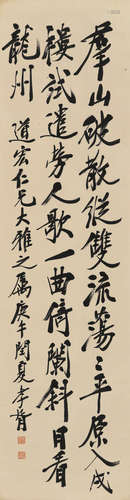 群山破散縱雙流蕩蕩平原入戍
樓試遣勞人歌一曲倚闌斜日看
龍州
道宏仁兄大雅之屬庚午閏夏李督